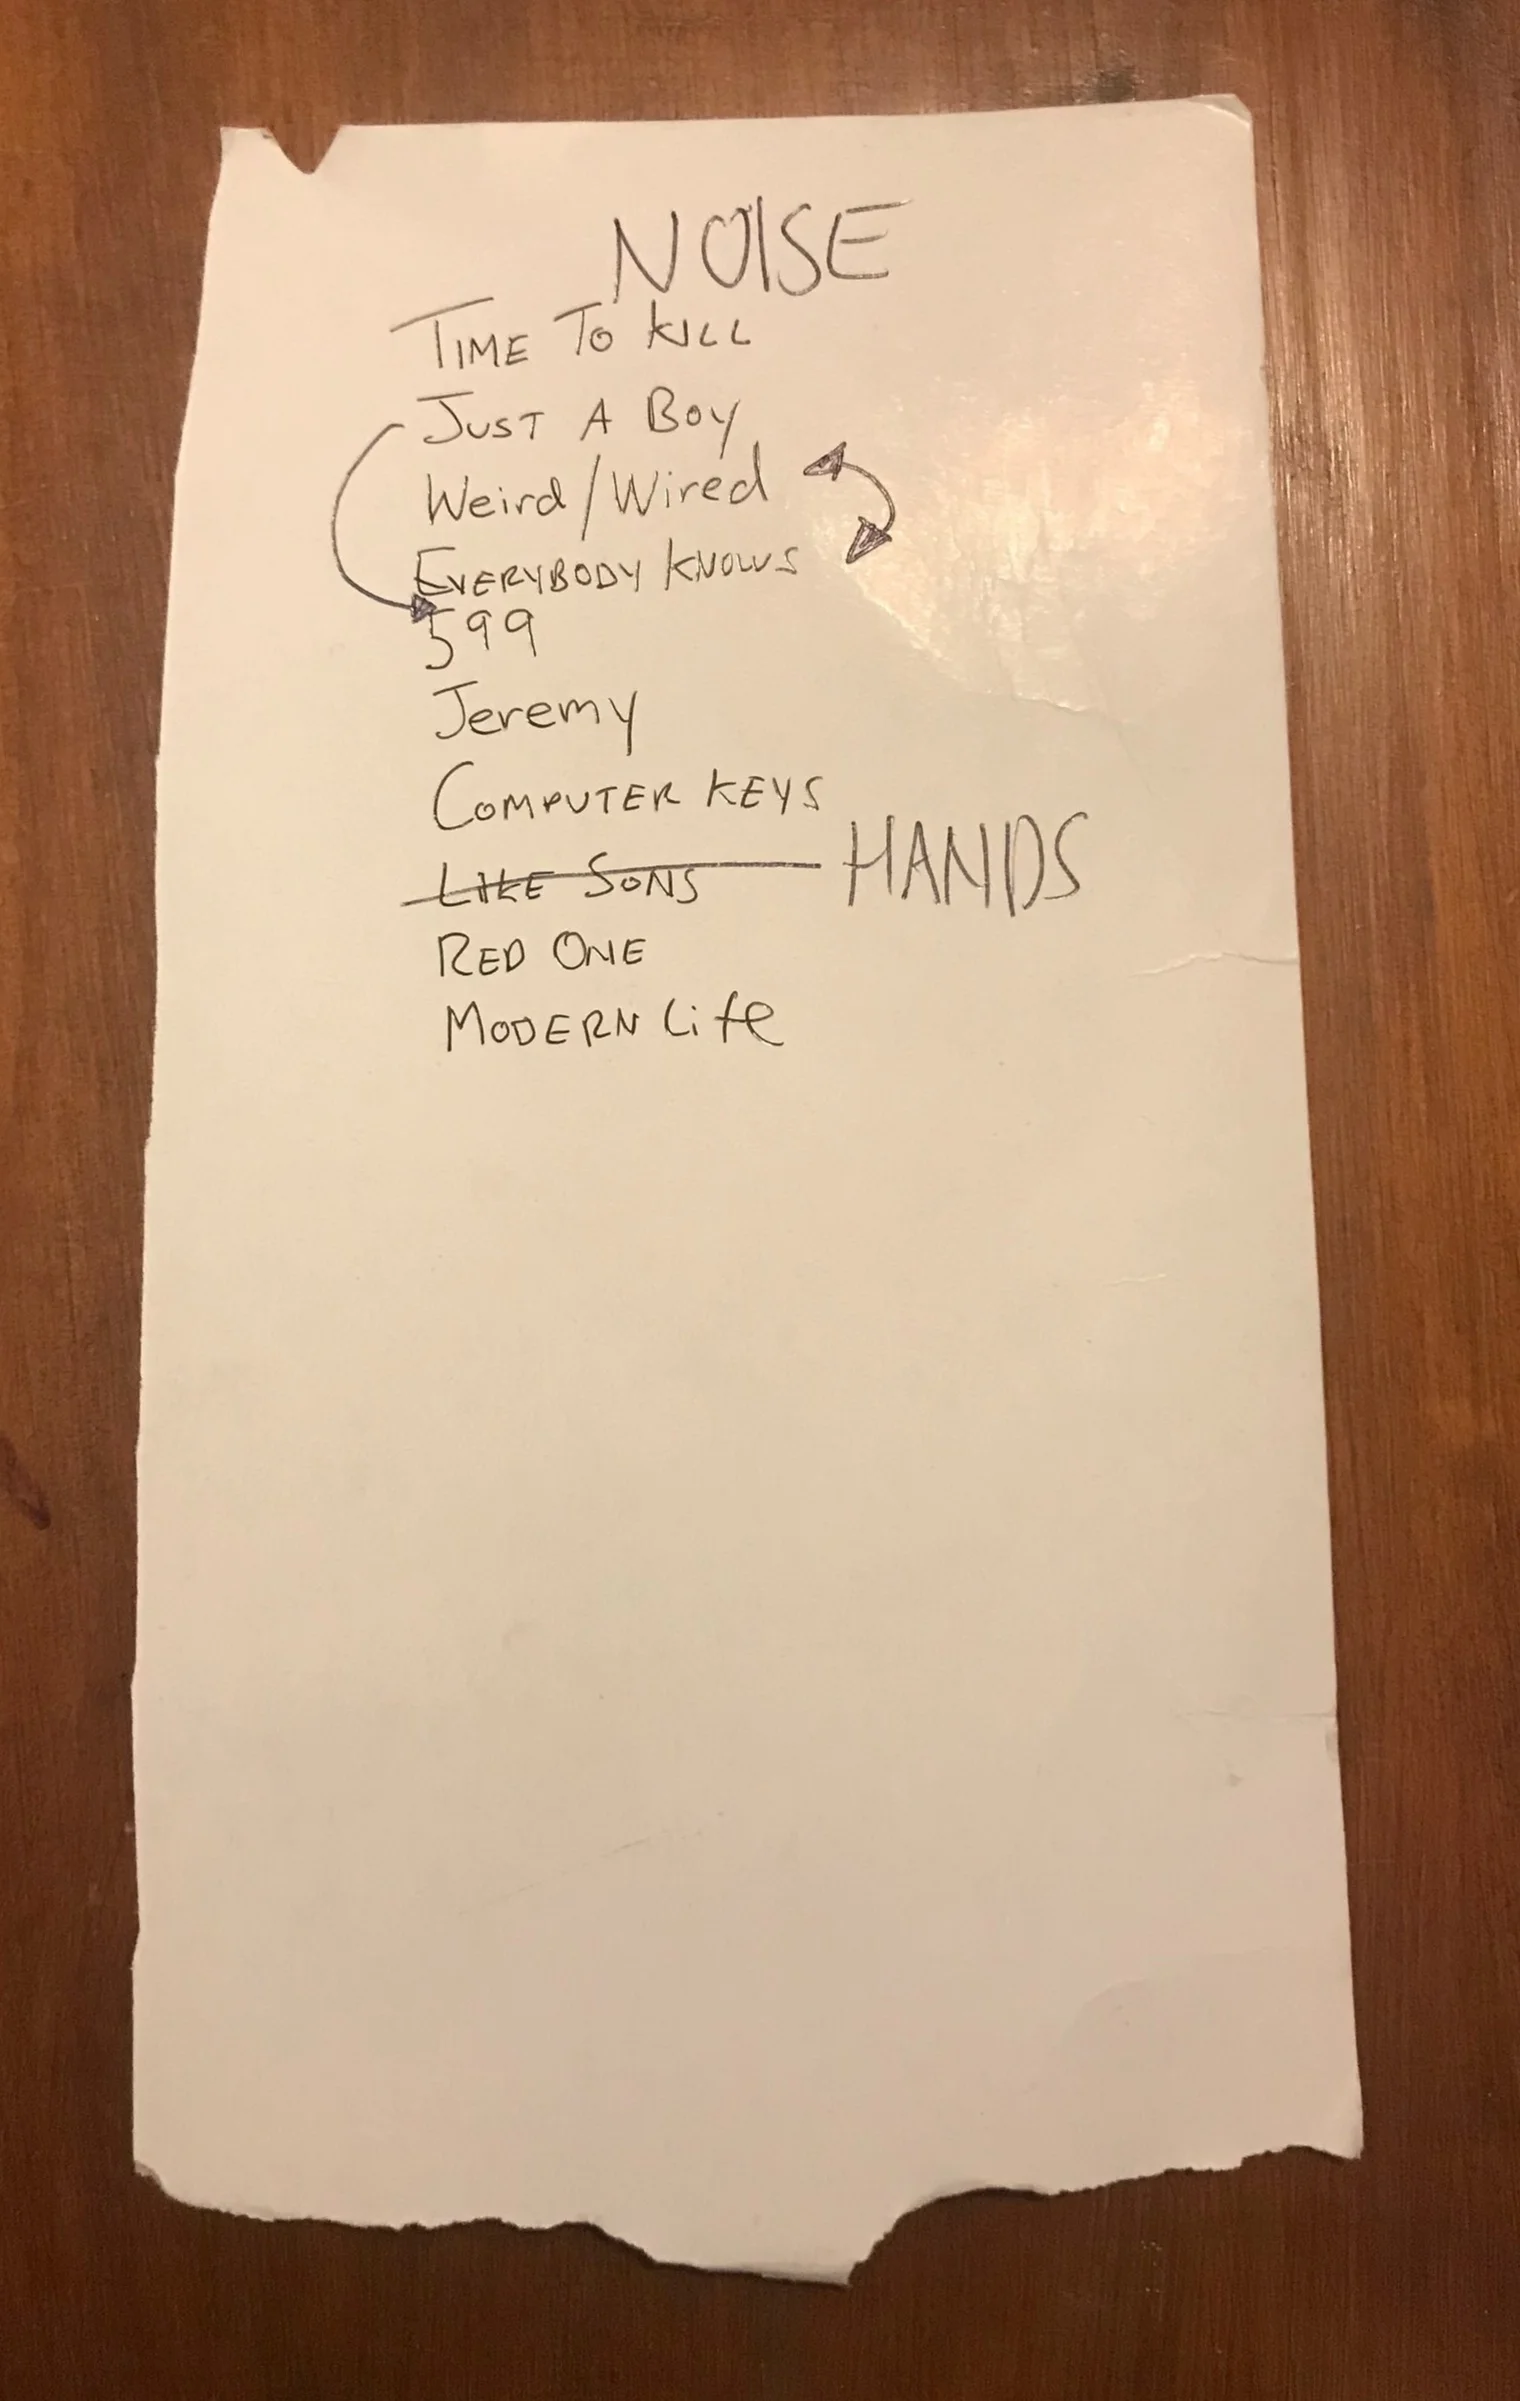 NOISE
TIME TO KILL
JUST A BOY
Weird/Wired
EVERYBODY KNOWS
599
Jeremy
COMPUTER KEYS
LIKE SONS HANDS
RED ONE
MODERN Life